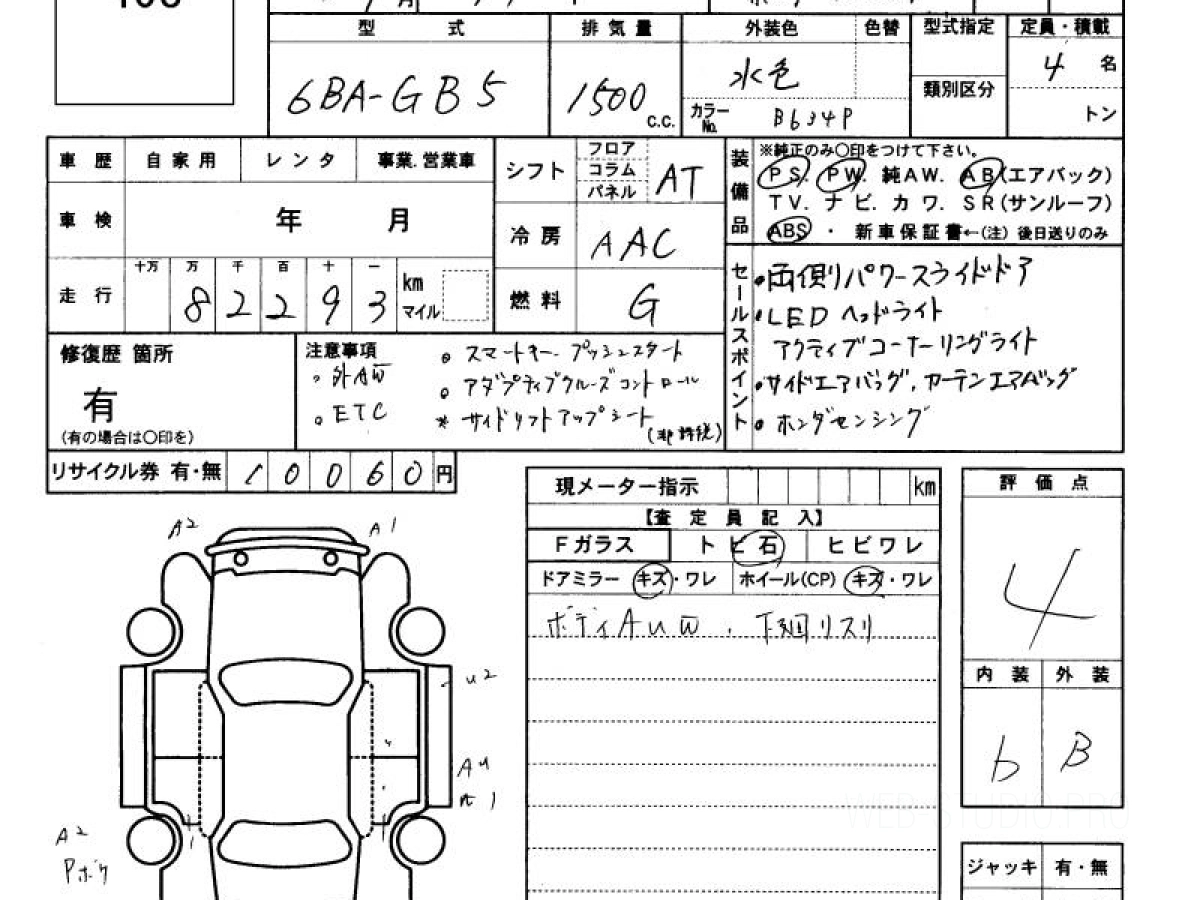 型 式
排気量
外装色
色替
型式指定
定員・積載
6BA-GB5
1500
C.C.
水色
カラーNo.
B634P
類別区分
4 名
トン
車歴
自家用
レンタ
事業.営業車
車検
年 月
走行
十万 万 千 百 十 一
8 2 2 9 3
km
マイル
シフト
フロア
コラム
パネル
AT
冷房
AAC
燃料
G
装備品
※純正のみ〇印をつけて下さい。
PS. PW. 純AW. AB(エアバック)
TV. ナビ. カワ. SR(サンルーフ)
ABS ・ 新車保証書←(注) 後日送りのみ
セールスポイント
・両側パワースライドドア
・LED ヘッドライト
アクティブコーナーリングライト
・サイドエアバッグ,カーテンエアバッグ
・ホンダセンシング
修復歴 箇所
有
(有の場合は〇印を)
注意事項
。外AW
。ETC
。スマートキー. プッシュスタート
。アダプティブクルーズコントロール
※サイドリフトアップシート
(非課税)
リサイクル券 有・無
1 0 0 6 0 円
現メーター指示
km
【査定員記入】
Fガラス
トビ石
ヒビワレ
ドアミラー キズ・ワレ
ホイール(CP) キズ・ワレ
ボディAUW . 下廻リスリ
評価点
4
内装
外装
b
B
ジャッキ
有・無
A2
A1
U2
AU
A2
WEB-STUDIO.PRO